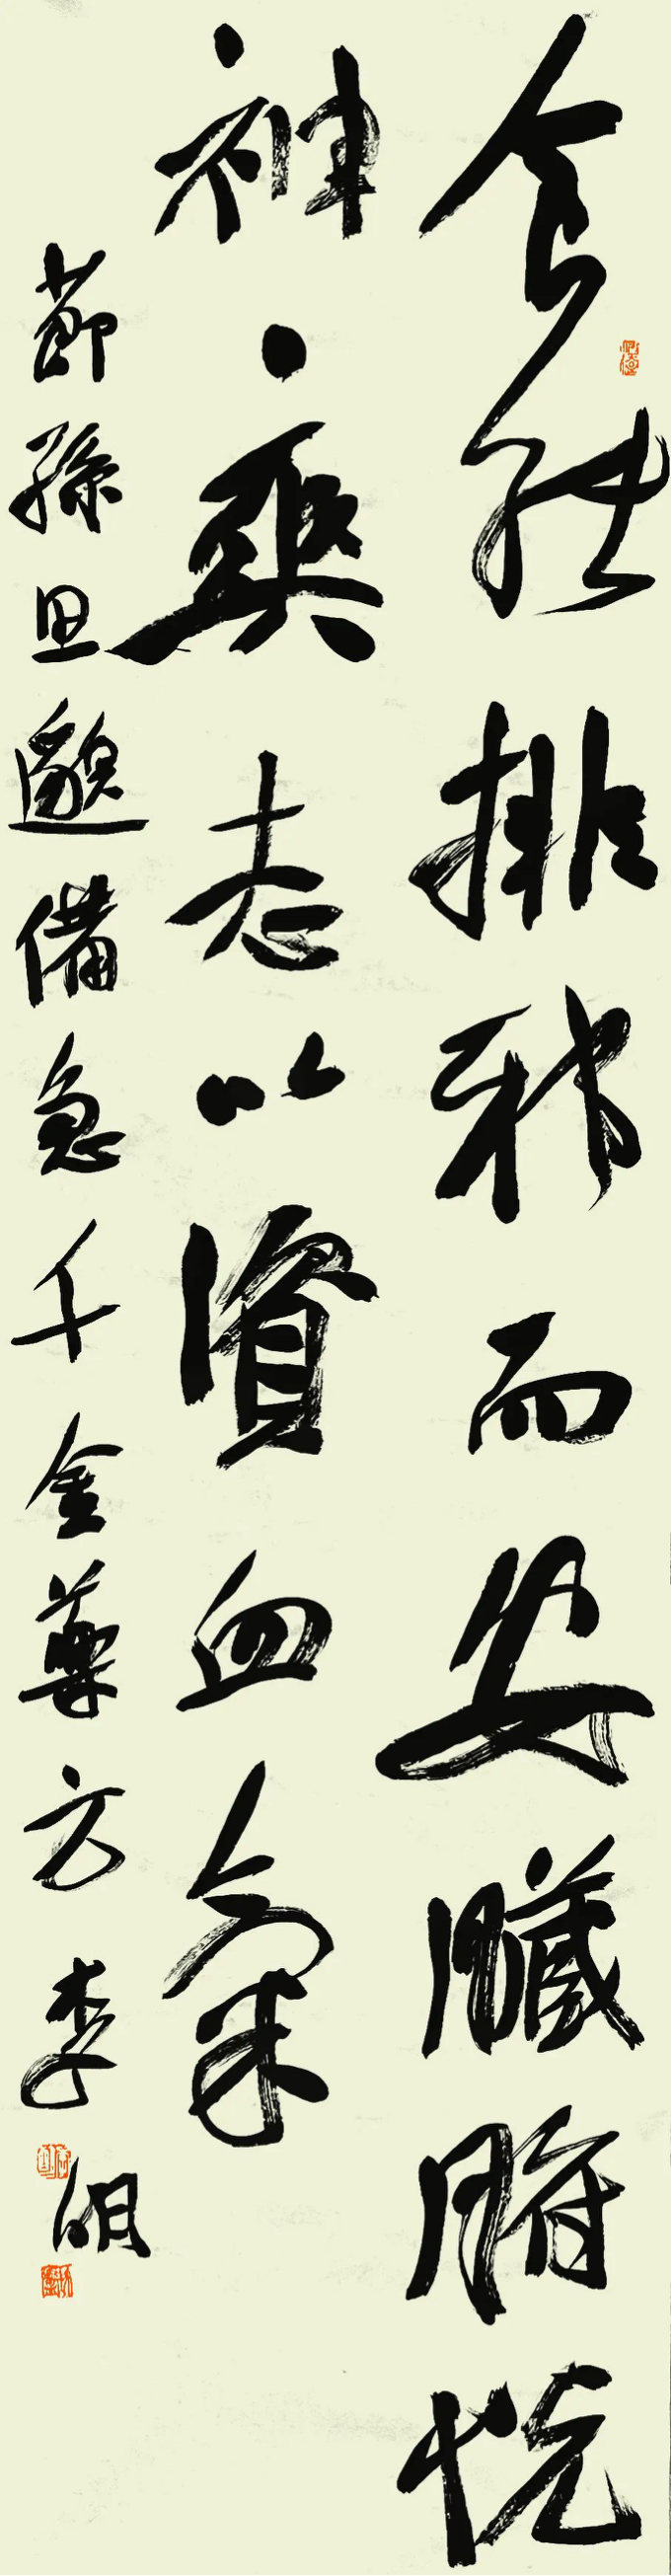 食能排邪而安臟腑悦
神爽志以資血氣
節孫思邈備急千金藥方李明